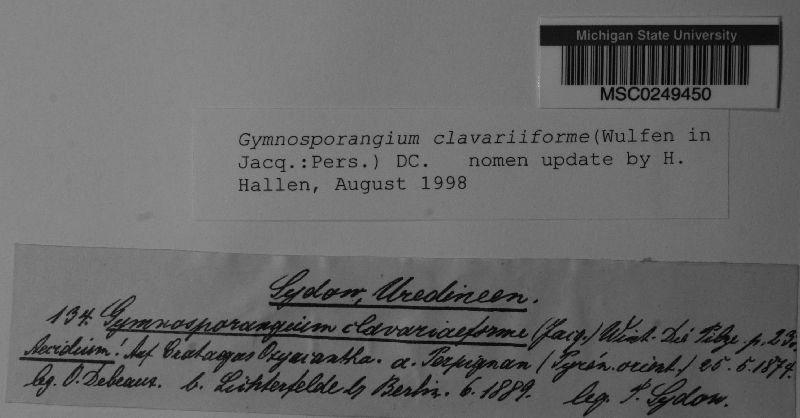 Michigan State University
MSC0249450
Gymnosporangium clavariiforme(Wulfen in
Jacq.:Pers.) DC. nomen update by H.
Hallen, August 1998
Sydow, Uredineen.
134. Gymnosporangium clavariaeforme (Jacq.) Wint. Die Pilze. p. 23.
Aecidium! Auf Crataegus Oxyacantha. a. Perpignan (Pyrén. orient.) 25. 5. 1874.
leg. O. Debeaux. b. Lichterfelde b Berlin. 6. 1889. leg. P. Sydow.